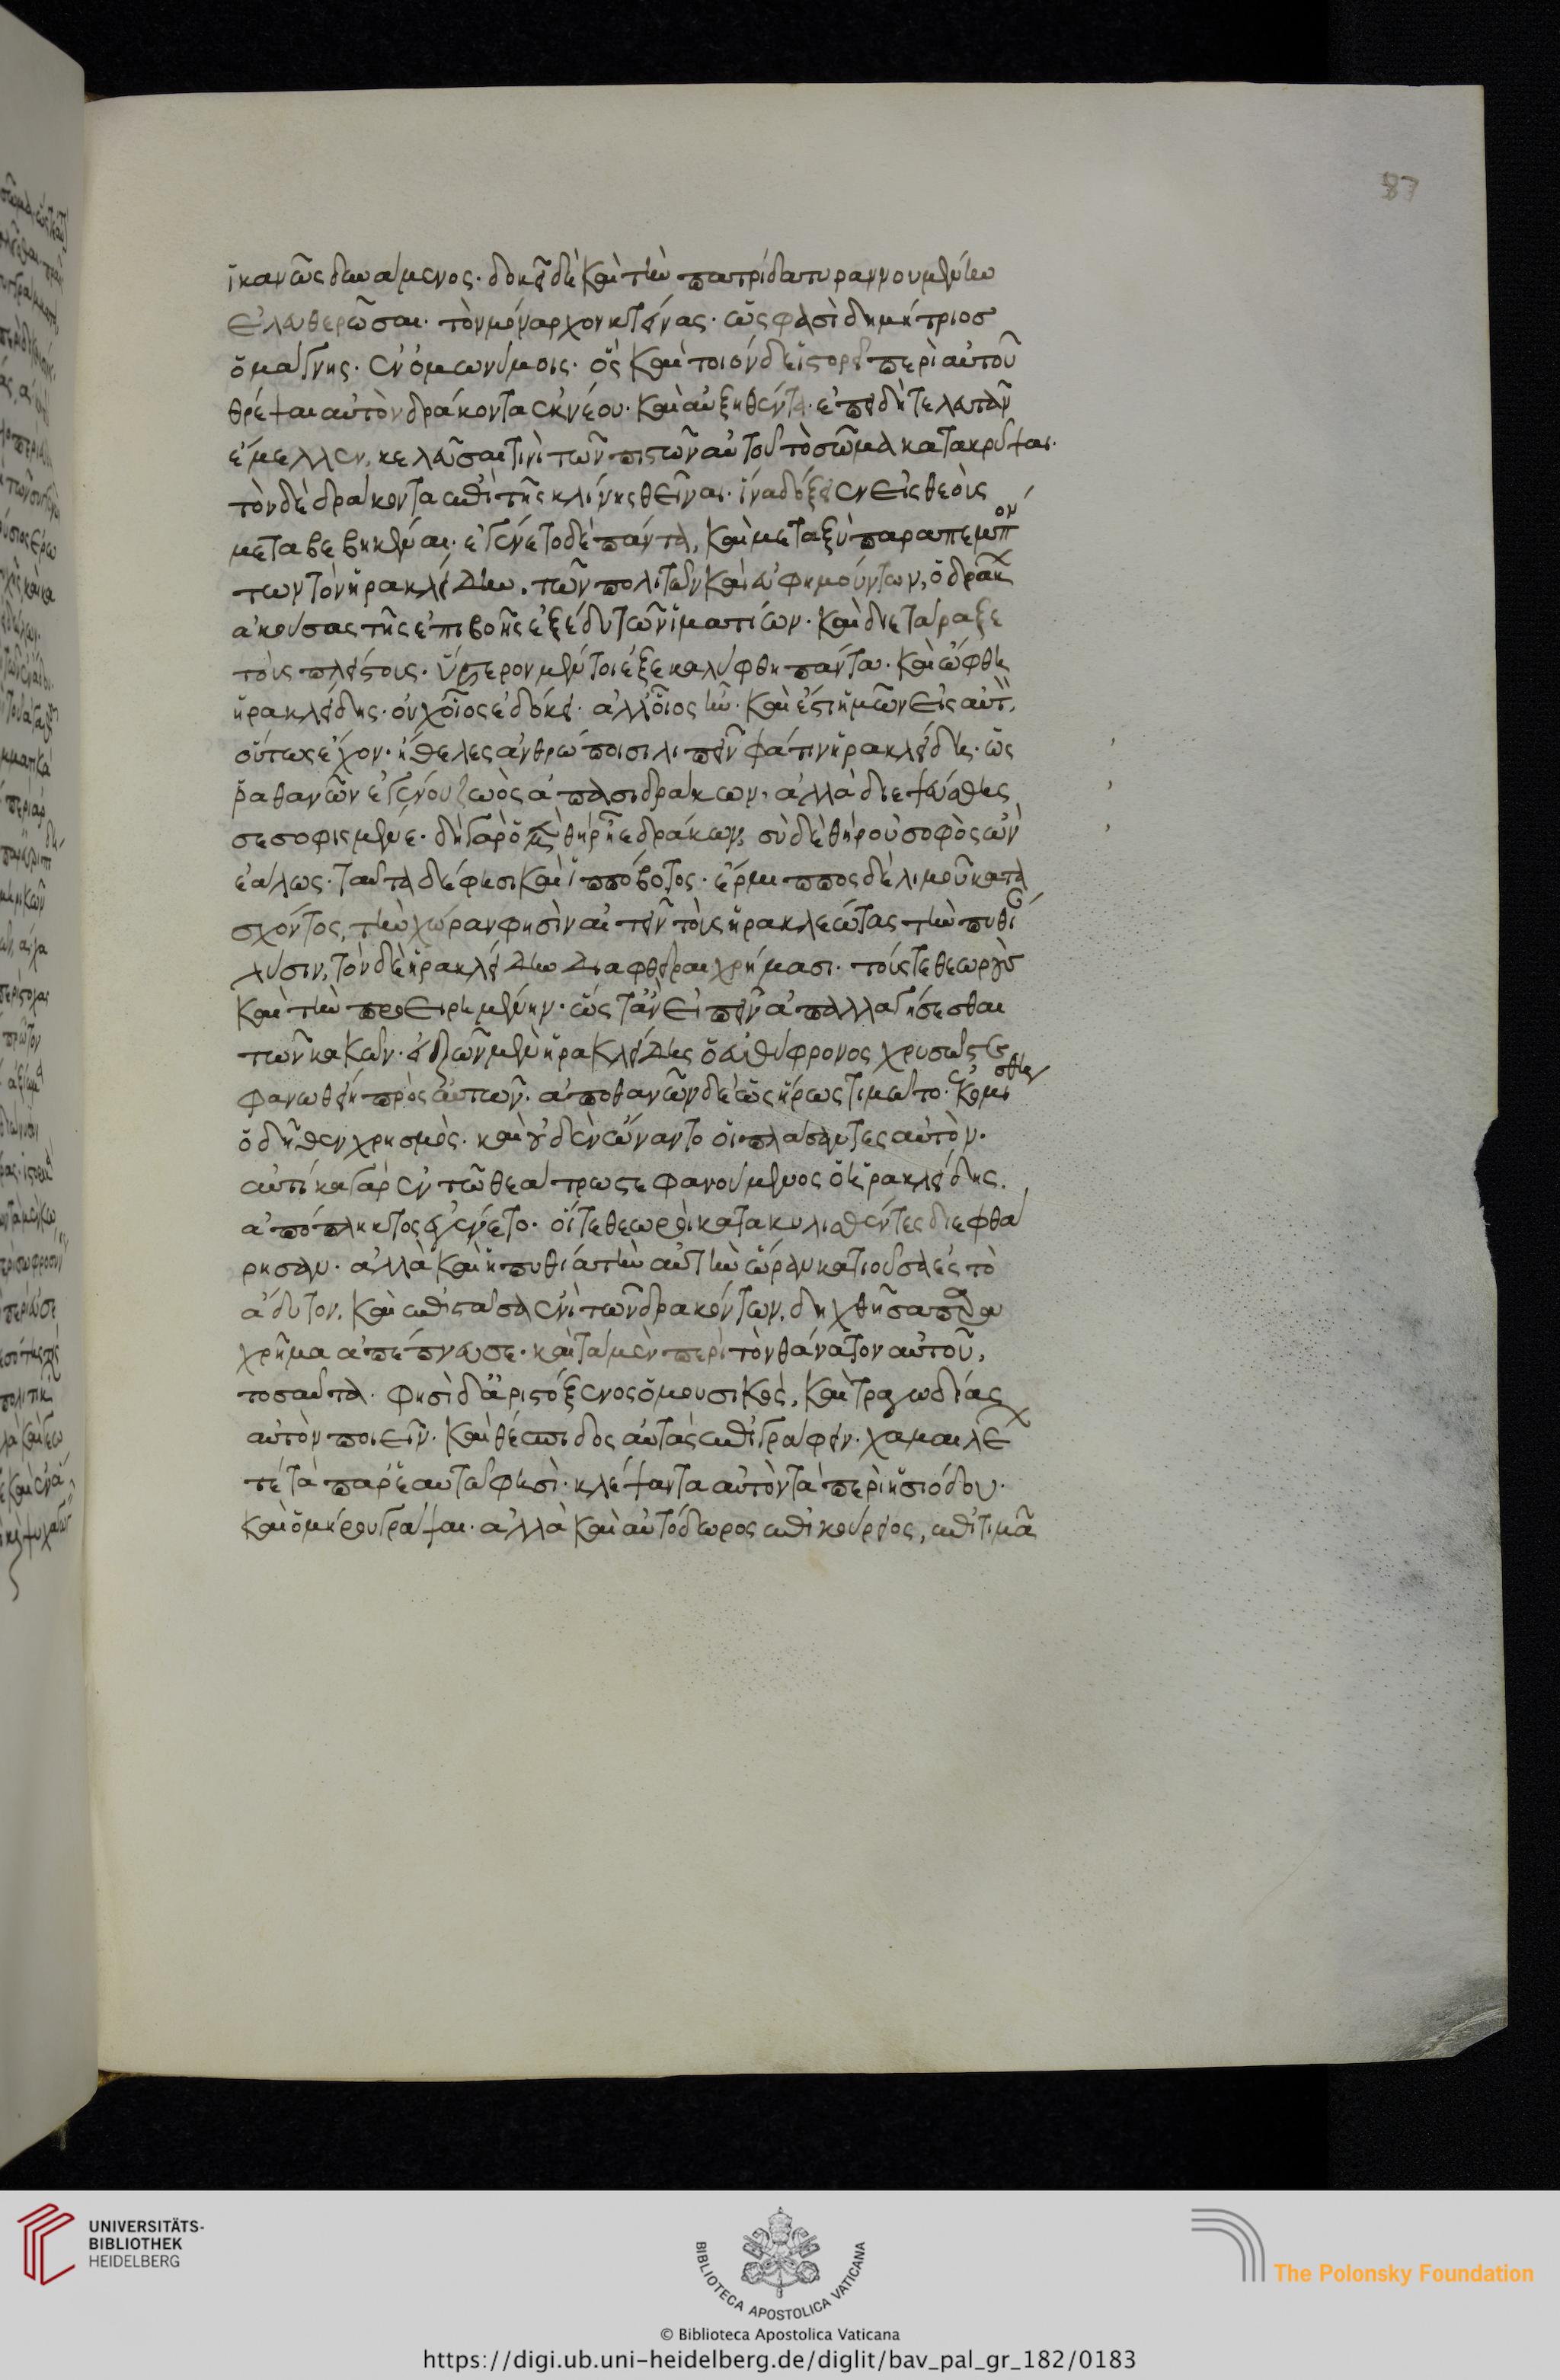 87
ἱκανῶς δυνάμενος. δοκεῖ δὲ καὶ τὴν πατρίδα τυραννουμένην
ἐλευθερῶσαι. τὸν μόναρχον κτείνας. ὥς φασὶ δημήτριος
ὁ μάγνης. ἐν ὁμωνύμοις. ὃς καὶ τοιόνδε ἱστορεῖ περὶ αὐτοῦ
θρέψαι αὐτὸν δράκοντα ἐκ νέου. καὶ αὐξηθέντα. ἐπειδὴ τελευτᾶν
ἔμελλεν, κελεῦσαι τινὶ τῶν πιστῶν αὐτοῦ τὸ σῶμα κατακρύψαι.
τὸν δὲ δράκοντα ἐπὶ τῆς κλίνης θεῖναι. ἵνα δόξειεν εἰς θεοὺς
μεταβεβηκέναι. ἐγένετο δὲ πάντα, καὶ μεταξὺ παραπεμπόν
των τὸν ἡρακλείδην. τῶν πολιτῶν καὶ εὐφημούντων, ὁ δράκ
ἀκούσας τῆς ἐπιβοῆς ἐξέδυ τῶν ἱματίων. καὶ διετάραξε
τοὺς πλείστους. ὕστερον μέντοι ἐξεκαλύφθη πάντα. καὶ ὤφθη
ἡρακλείδης. οὐχ οἷος ἐδόκει. ἀλλ' οἷος ἦν. καὶ ἔστι ἡμῶν εἰς αὐτὸν
οὕτως ἔχον. ἤθελες ἀνθρώποισι λιπεῖν φάτιν ἡρακλείδη. ὥς
ῥα θανὼν ἐγένου ζωὸς ἅπασι δράκων. ἀλλὰ διεψεύσθης
σεσοφισμένε. δὴ γὰρ ὁ μὲν θὴρ ἦε δράκων, σὺ δὲ θὴρ οὐ σοφὸς ὢν
ἑάλως. ταῦτα δέ φησι καὶ ἱππόβοτος. ἕρμιππος δὲ λιμοῦ κατα
σχόντος, τὴν χώραν φησὶν αἰτεῖν τοὺς ἡρακλεώτας τὴν πυθί
λύσιν, τὸν δὲ ἡρακλείδην διαφθεῖραι χρήμασι. τούς τε θεωροὺς
καὶ τὴν προειρημένην. ὥς τ' ἂν εἰπεῖν ἀπαλλαγήσεσθαι
τῶν κακῶν. εἰ ζῶν μὲν ἡρακλείδης ὁ εὐθύφρονος χρυσῷ στε
φάνω θείη πρὸς αὐτῶν. ἀποθανὼν δὲ ὡς ἥρως τιμῶτο. ἐκομίσθη
ὁ δῆθεν χρησμὸς. καὶ οὐδὲν ὤναντο οἱ πλάσαντες αὐτὸν.
αὐτίκα γὰρ ἐν τῶ θεάτρω στεφανούμενος ὁ ἡρακλείδης.
ἀπόπληκτος ἐγένετο. οἵ τε θεωροὶ κατακυλισθέντες διεφθά
ρησαν. ἀλλὰ καὶ ἡ πυθία τὴν αὐτὴν ὥραν κατιοῦσα εἰς τὸ
ἄδυτον. καὶ ἐπιστᾶσα ἑνὶ τῶν δρακόντων, δηχθῆσα παρα
χρῆμα ἀπέπνευσε. καὶ τὰ μὲν περὶ τὸν θάνατον αὐτοῦ,
τοσαῦτα. φησὶ δ' ἀριστόξενος ὁ μουσικὸς, καὶ τραγωδίας
αὐτὸν ποιεῖν. καὶ θέσπιδος αὐτὰς ἐπιγράφειν. χαμαιλέ
τέ τὰ παρ' ἑαυτῶ φησὶ. κλέψαντα αὐτὸν τὰ περὶ ἡσιόδου.
καὶ ὁμήρου γράψαι. ἀλλὰ καὶ αὐτόδωρος ἐπικούρειος, ἐπιτιμᾶ
UNIVERSITÄTS-
BIBLIOTHEK
HEIDELBERG
BIBLIOTECA APOSTOLICA VATICANA
The Polonsky Foundation
© Biblioteca Apostolica Vaticana
https://digi.ub.uni-heidelberg.de/diglit/bav_pal_gr_182/0183